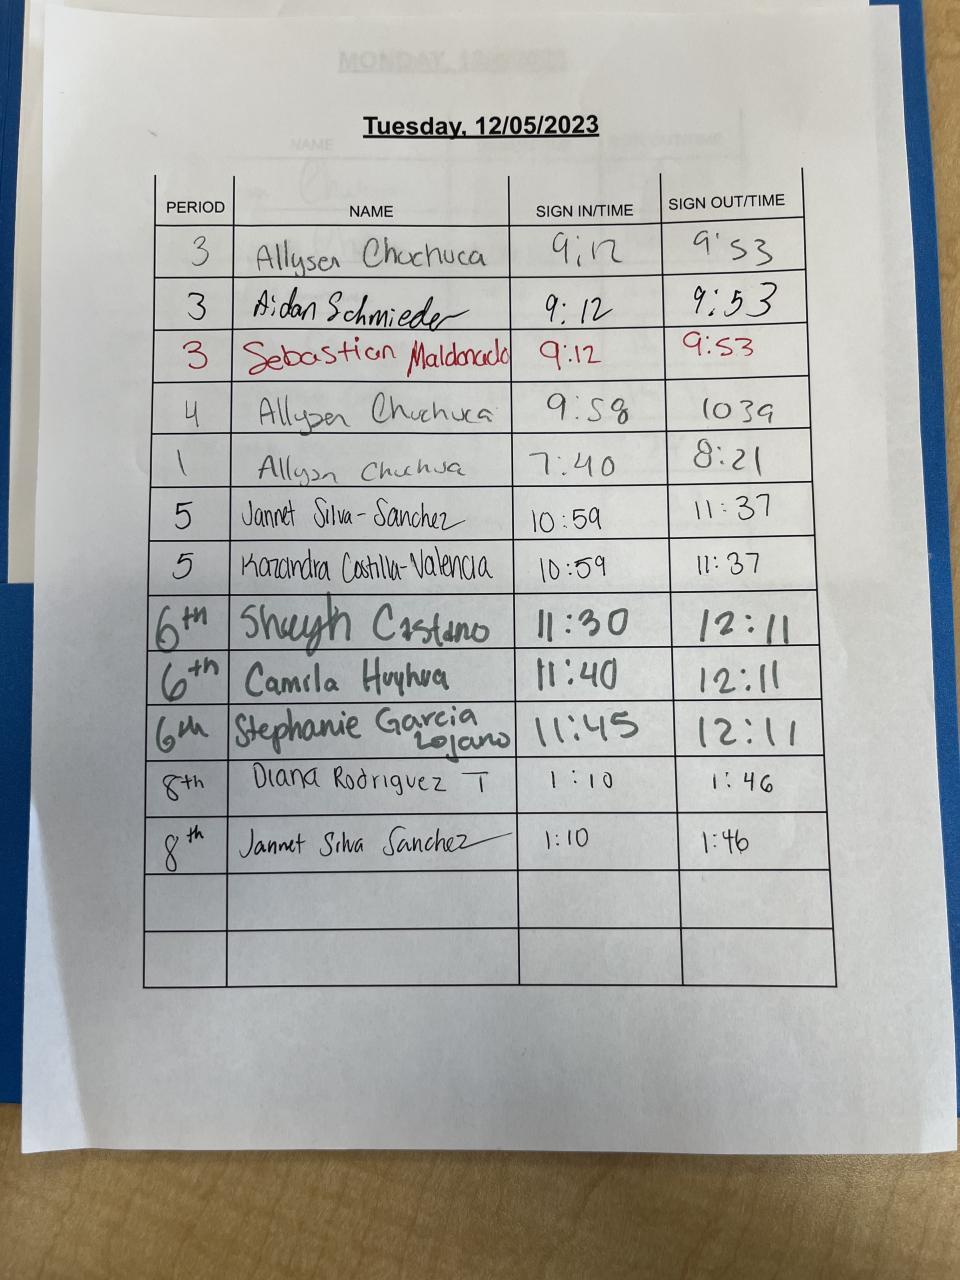 Tuesday, 12/05/2023
PERIOD NAME SIGN IN/TIME SIGN OUT/TIME
3 Allysen Chuchuca 9:12 9:53
3 Aidan Schmieder 9:12 9:53
3 Sebastian Maldonado 9:12 9:53
4 Allysen Chuchuca 9:58 1039
1 Allysen 7:40 8:21
5 Jannet Silva-Sanchez 10:59 11:37
5 Kazandra Costilla-Valencia 10:59 11:37
6th Castano 11:30 12:11
6th Camila Huyhua 11:40 12:11
6th Stephanie Garcia 11:45 12:11
Lojano
8th Diana Rodriguez T 1:10 1:46
8th Jannet Silva Sanchez 1:10 1:46